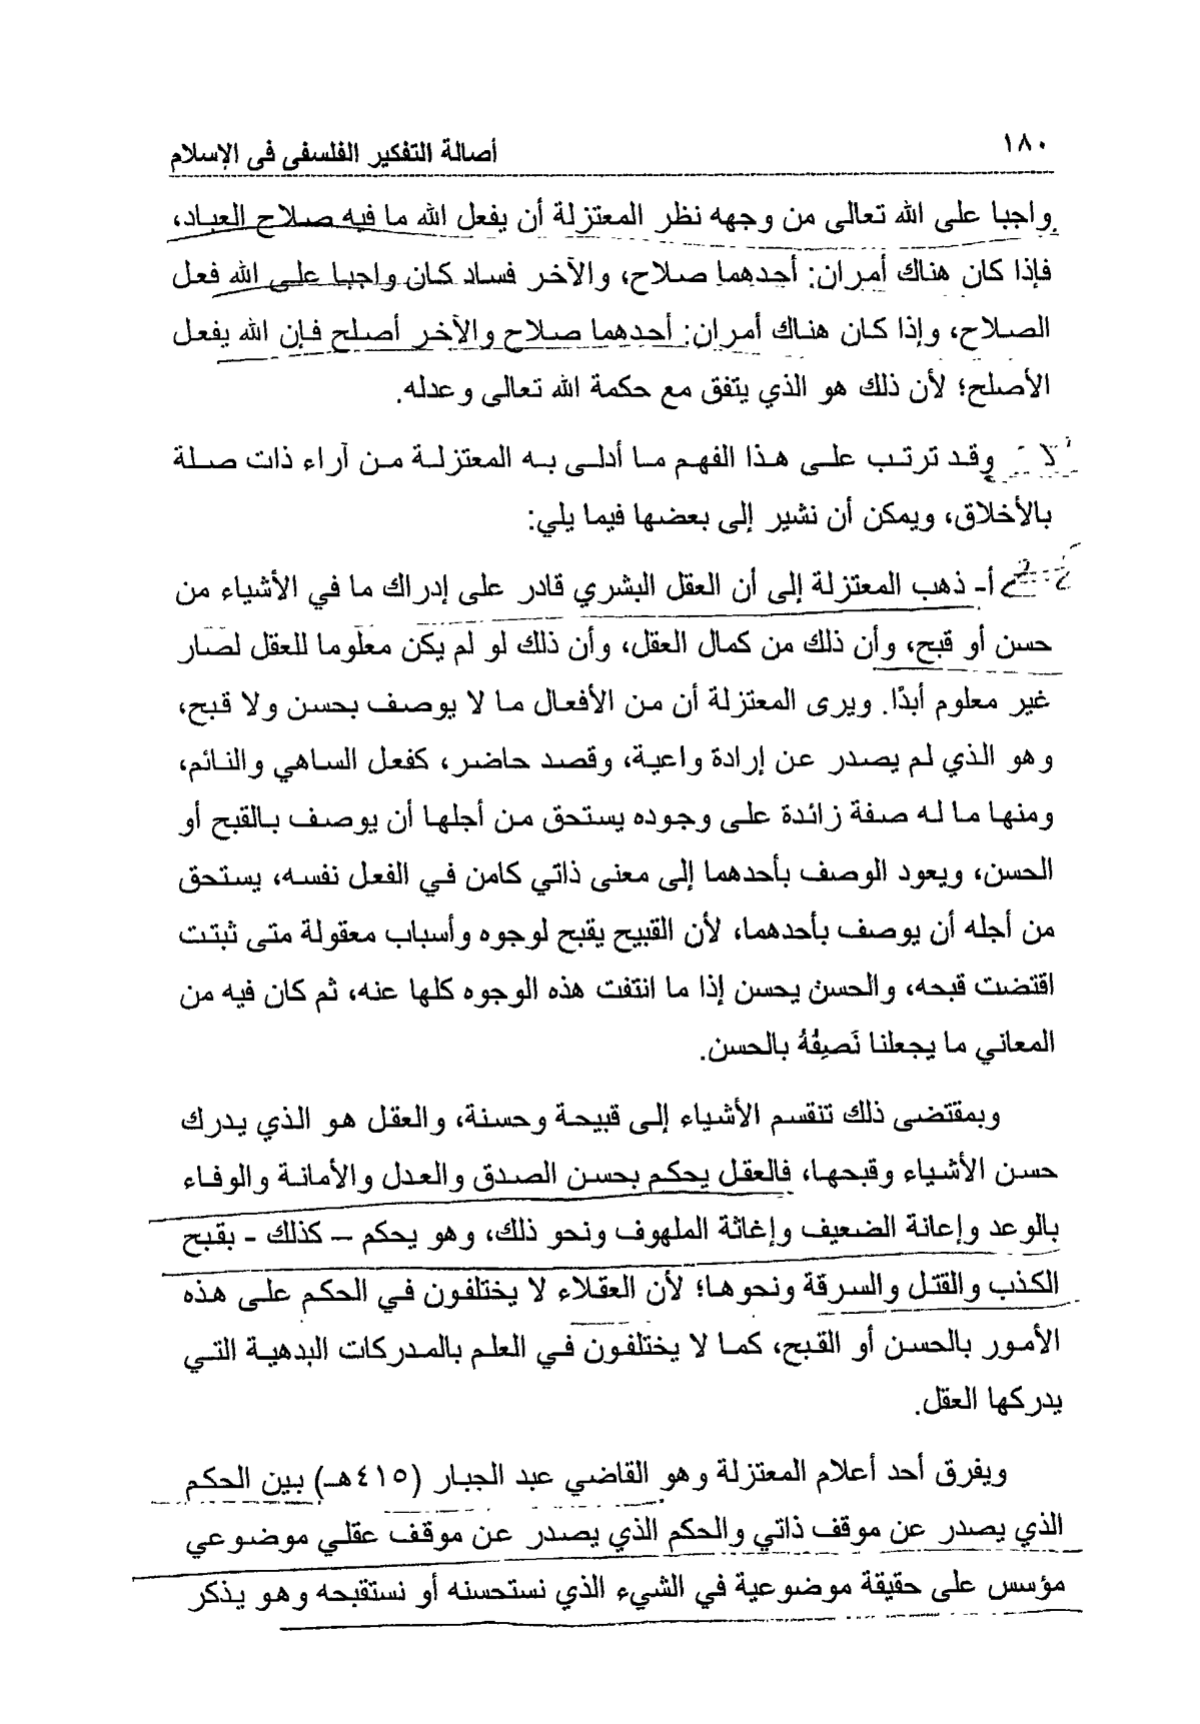 ١٨٠
أصالة التفكير الفلسفى فى الإسلام
واجبا على الله تعالى من وجهه نظر المعتزلة أن يفعل الله ما فيه صلاح العباد،
فإذا كان هناك أمران: أحدهما صلاح، والآخر فساد كان واجبا على الله فعل
الصلاح، وإذا كان هناك أمران: أحدهما صلاح والآخر أصلح فإن الله يفعل
الأصلح؛ لأن ذلك هو الذي يتفق مع حكمة الله تعالى وعدله.
وقد ترتب على هذا الفهم ما أدلى به المعتزلة من آراء ذات صلة
بالأخلاق، ويمكن أن نشير إلى بعضها فيما يلي:
أ- ذهب المعتزلة إلى أن العقل البشري قادر على إدراك ما في الأشياء من
حسن أو قبح، وأن ذلك من كمال العقل، وأن ذلك لو لم يكن معلوما للعقل لصار
غير معلوم أبدًا. ويرى المعتزلة أن من الأفعال ما لا يوصف بحسن ولا قبح،
وهو الذي لم يصدر عن إرادة واعية، وقصد حاضر، كفعل الساهي والنائم،
ومنها ما له صفة زائدة على وجوده يستحق من أجلها أن يوصف بالقبح أو
الحسن، ويعود الوصف بأحدهما إلى معنى ذاتي كامن في الفعل نفسه، يستحق
من أجله أن يوصف بأحدهما، لأن القبيح يقبح لوجوه وأسباب معقولة متى ثبتت
اقتضت قبحه، والحسن يحسن إذا ما انتفت هذه الوجوه كلها عنه، ثم كان فيه من
المعاني ما يجعلنا نَصِفُهُ بالحسن.
وبمقتضى ذلك تنقسم الأشياء إلى قبيحة وحسنة، والعقل هو الذي يدرك
حسن الأشياء وقبحها، فالعقل يحكم بحسن الصدق والعدل والأمانة والوفاء
بالوعد وإعانة الضعيف وإغاثة الملهوف ونحو ذلك، وهو يحكم – كذلك - بقبح
الكذب والقتل والسرقة ونحوها؛ لأن العقلاء لا يختلفون في الحكم على هذه
الأمور بالحسن أو القبح، كما لا يختلفون في العلم بالمدركات البدهية التي
يدركها العقل.
ويفرق أحد أعلام المعتزلة وهو القاضي عبد الجبار (٤١٥هـ) بين الحكم
الذي يصدر عن موقف ذاتي والحكم الذي يصدر عن موقف عقلي موضوعي
مؤسس على حقيقة موضوعية في الشيء الذي نستحسنه أو نستقبحه وهو يذكر